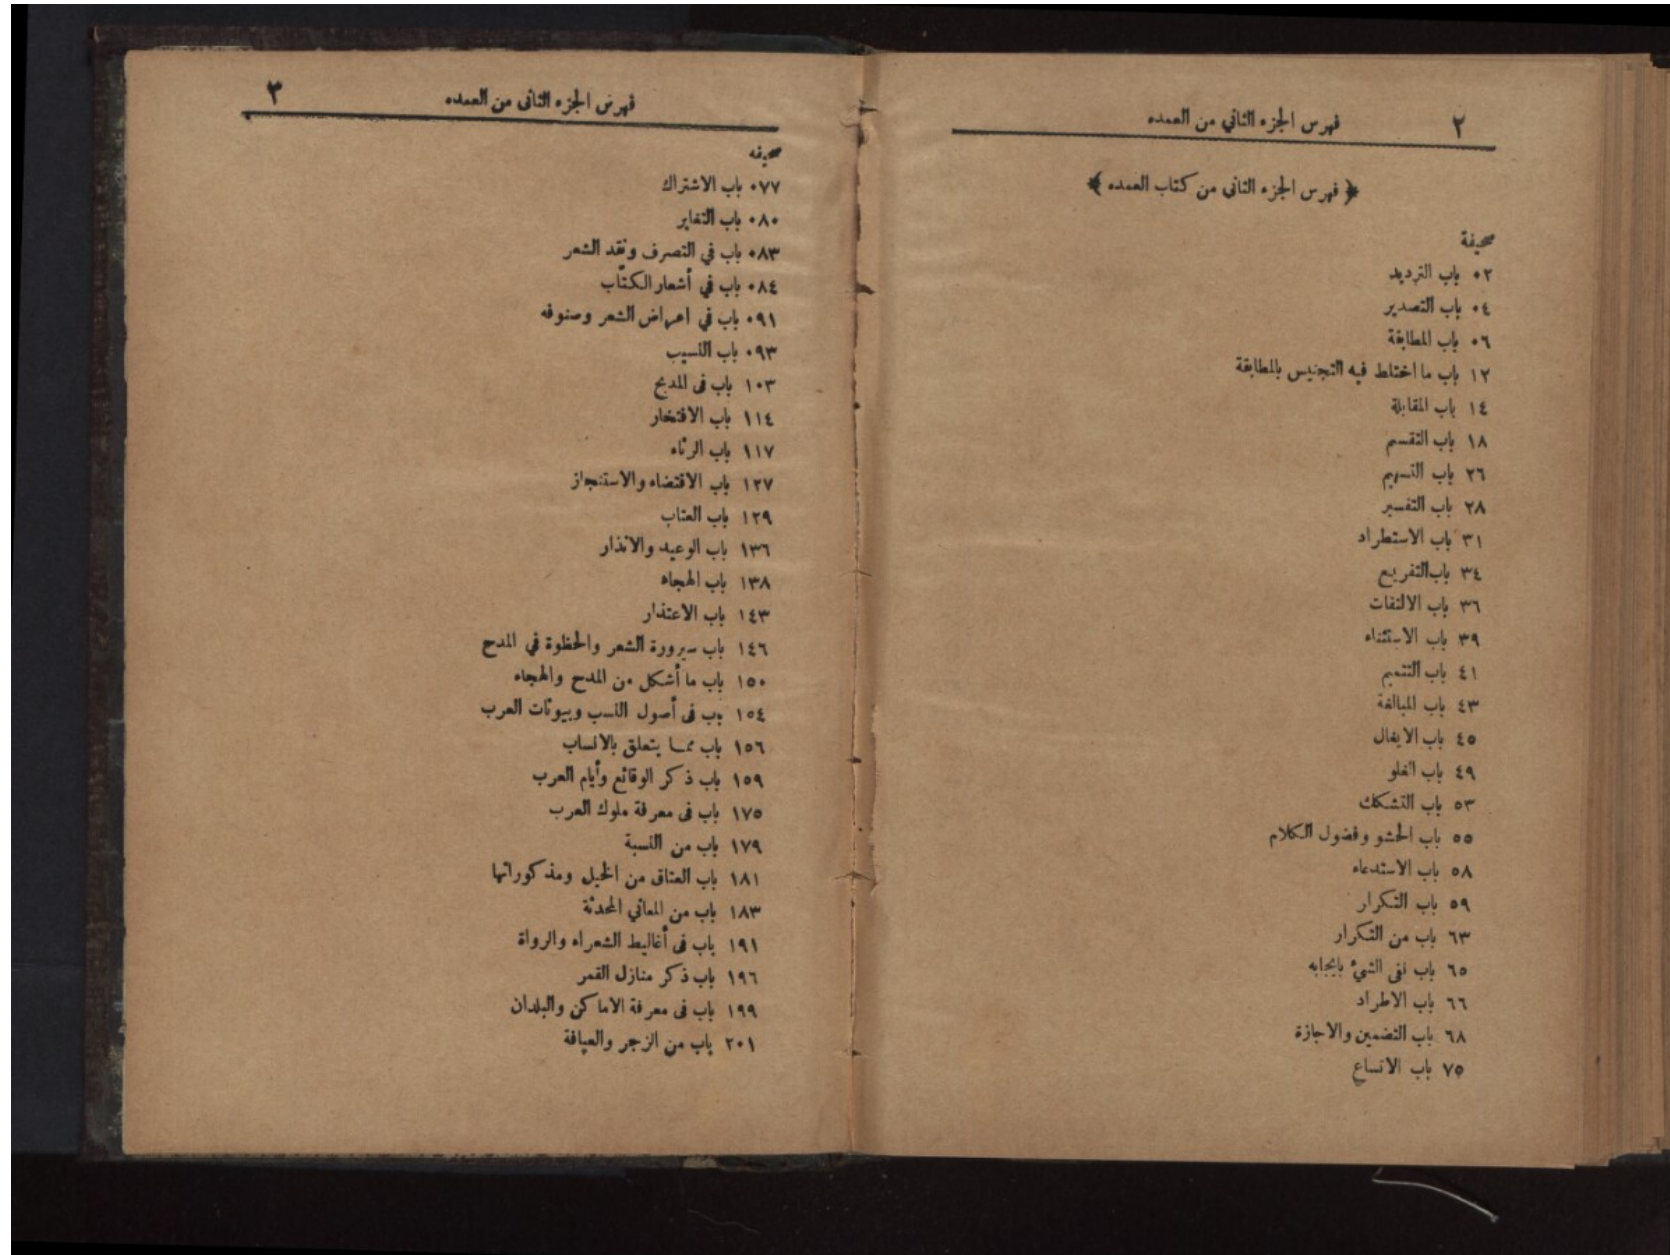 ٢ فهرس الجزء الثاني من العمده
﴿ فهرس الجزء الثانى من كتاب العمده ﴾
صحيفة
٠٢ باب الترديد
٠٤ باب التصدير
٠٦ باب المطابقة
١٢ باب ما اختلط فيه التجنيس بالمطابقة
١٤ باب المقابلة
١٨ باب التقسيم
٢٦ باب التسهيم
٢٨ باب التفسير
٣١ باب الاستطراد
٣٤ باب التفريع
٣٦ باب الالتفات
٣٩ باب الاستثناء
٤١ باب التتميم
٤٣ باب المبالغة
٤٥ باب الايغال
٤٩ باب الغلو
٥٣ باب التشكك
٥٥ باب الحشو وفضول الكلام
٥٨ باب الاستدعاء
٥٩ باب التكرار
٦٣ باب من التكرار
٦٥ باب نفى الشئ بايجابه
٦٦ باب الاطراد
٦٨ باب التضمين والاجازة
٧٥ باب الاتساع
فهرس الجزء الثانى من العمده ٣
صحيفه
٠٧٧ باب الاشتراك
٠٨٠ باب التغاير
٠٨٣ باب في التصرف ونقد الشعر
٠٨٤ باب في أشعار الكتّاب
٠٩١ باب في اعراض الشعر وصنوفه
٠٩٣ باب النسيب
١٠٣ باب فى المديح
١١٤ باب الافتخار
١١٧ باب الرثاء
١٢٧ باب الاقتضاء والاستنجاز
١٢٩ باب العتاب
١٣٦ باب الوعيد والانذار
١٣٨ باب الهجاء
١٤٣ باب الاعتذار
١٤٦ باب سيرورة الشعر والحظوة في المدح
١٥٠ باب ما أشكل من المدح والهجاء
١٥٤ باب فى أصول النسب وبيوتات العرب
١٥٦ باب مما يتعلق بالانساب
١٥٩ باب ذكر الوقائع وأيام العرب
١٧٥ باب فى معرفة ملوك العرب
١٧٩ باب من النسبة
١٨١ باب العتاق من الخيل ومذكوراتها
١٨٣ باب من المعاني المحدثة
١٩١ باب فى أغاليط الشعراء والرواة
١٩٦ باب ذكر منازل القمر
١٩٩ باب فى معرفة الاماكن والبلدان
٢٠١ باب من الزجر والعيافة